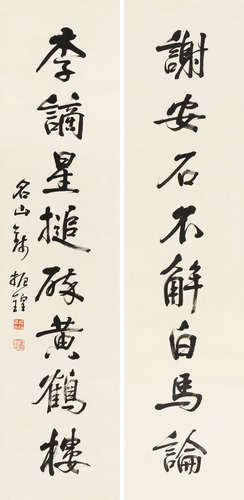 謝安石不解白馬論
李謫星搥碎黃鶴樓
名山錢振鍠